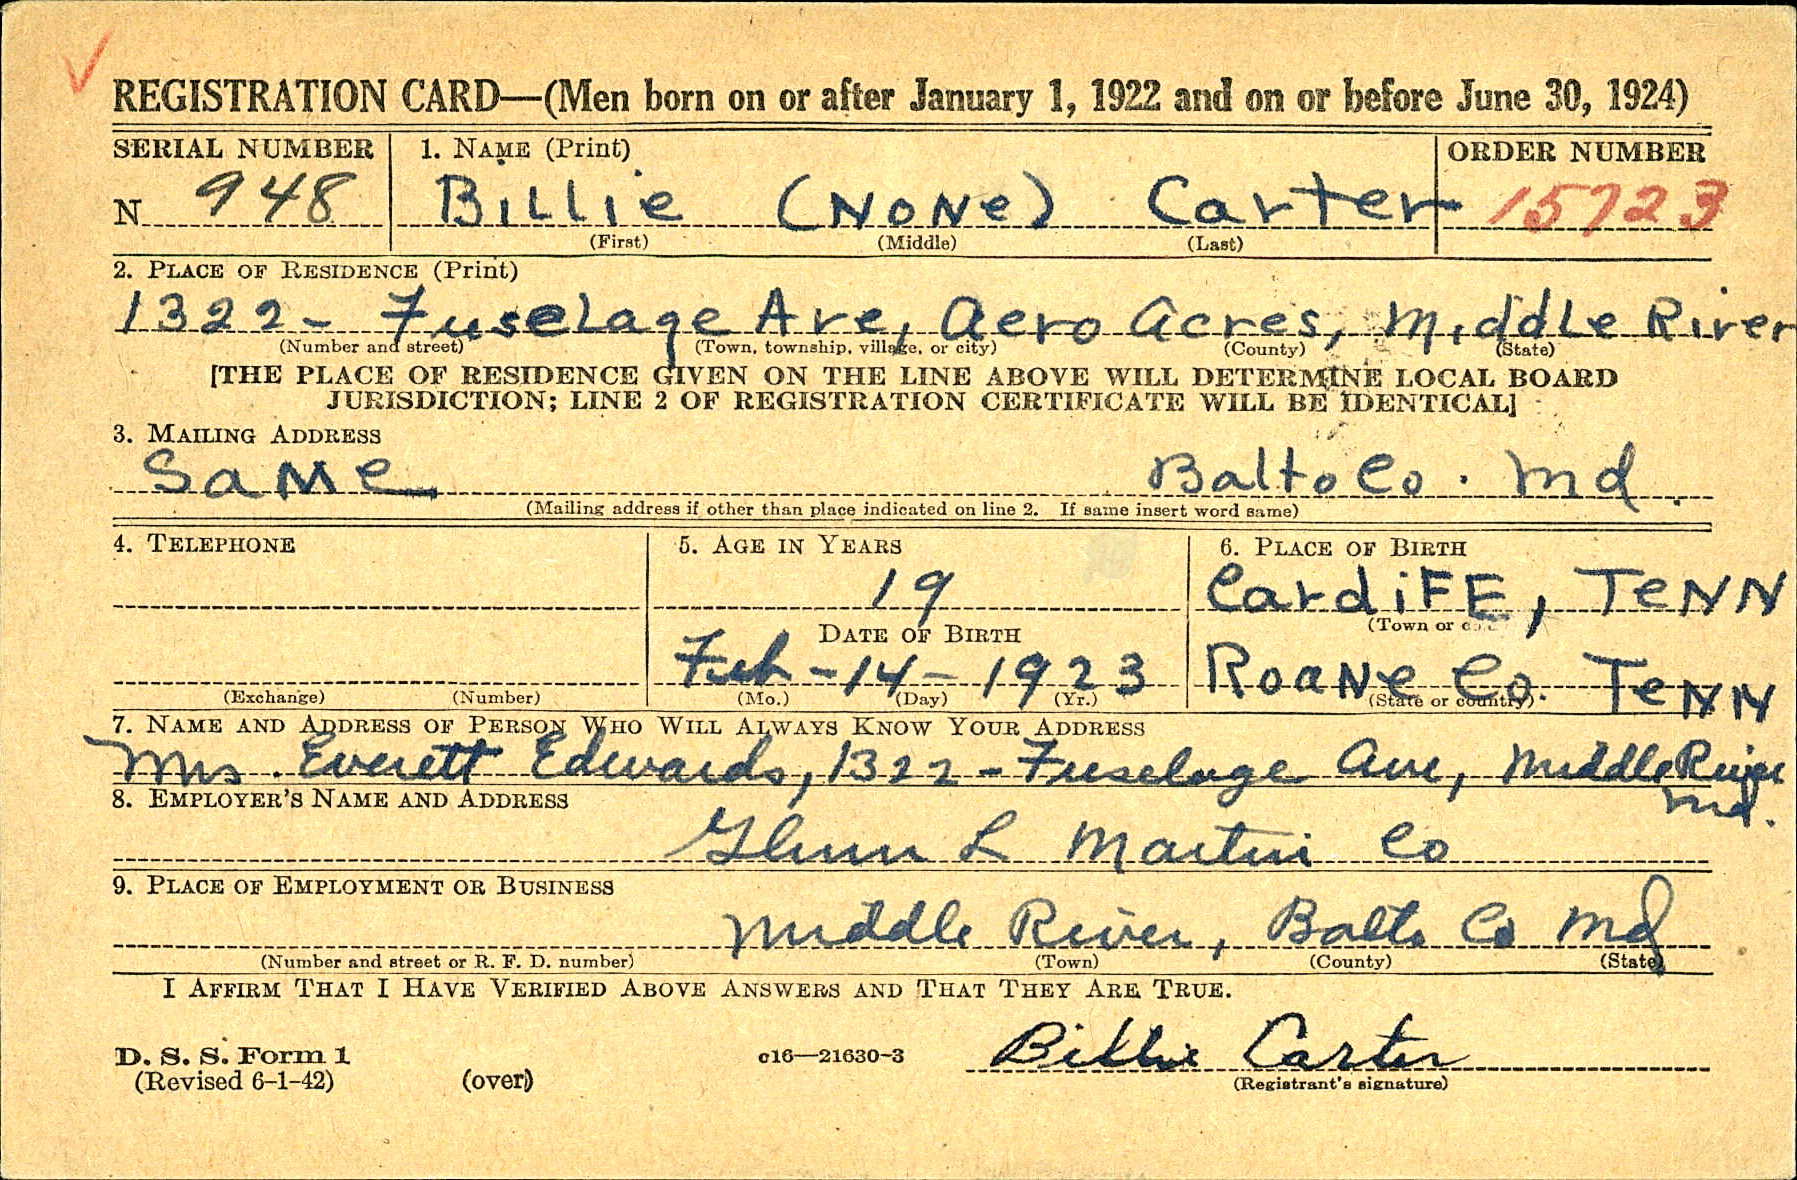 REGISTRATION CARD—(Men born on or after January 1, 1922 and on or before June 30, 1924)
SERIAL NUMBER 1. NAME (Print) ORDER NUMBER
N 948 BiLLie (NoNe) Carter 15723
(First) (Middle) (Last)
2. PLACE OF RESIDENCE (Print)
1322 - Fuselage Ave, Aero Acres, Middle River
(Number and street) (Town, township, village, or city) (County) (State)
[THE PLACE OF RESIDENCE GIVEN ON THE LINE ABOVE WILL DETERMINE LOCAL BOARD
JURISDICTION; LINE 2 OF REGISTRATION CERTIFICATE WILL BE IDENTICAL]
3. MAILING ADDRESS
Same Balto Co. Md.
(Mailing address if other than place indicated on line 2. If same insert word same)
4. TELEPHONE 5. AGE IN YEARS 6. PLACE OF BIRTH
19 CardiFF, TeNN
DATE OF BIRTH (Town or
Feb - 14 - 1923 RoaNe Co. TeNN
(Exchange) (Number) (Mo.) (Day) (Yr.) (State or country)
7. NAME AND ADDRESS OF PERSON WHO WILL ALWAYS KNOW YOUR ADDRESS
Mrs. Everett Edwards, 1322 - Fuselage Ave, Middle River
Md.
8. EMPLOYER'S NAME AND ADDRESS
Glenn L Martin Co
9. PLACE OF EMPLOYMENT OR BUSINESS
Middle River, Balto Co Md
(Number and street or R. F. D. number) (Town) (County) (State)
I AFFIRM THAT I HAVE VERIFIED ABOVE ANSWERS AND THAT THEY ARE TRUE.
D. S. S. Form 1 c16—21630-3 Billie Carter
(Revised 6-1-42) (over) (Registrant's signature)